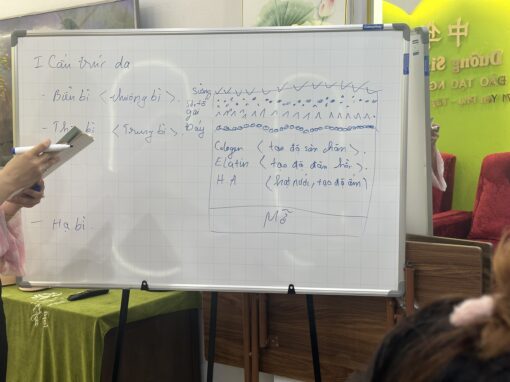 I Cấu trúc da
- Biểu bì < thượng bì >.
- Trung bì >.
- Hạ bì.
Sừng
gai
Đáy
Cologen < tạo độ săn chắn >.
Elatin < tạo độ đàn hồi >.
H A < hút nước, tạo độ ẩm >
Mỡ
Dưỡng Si
ĐÀO TẠO NG